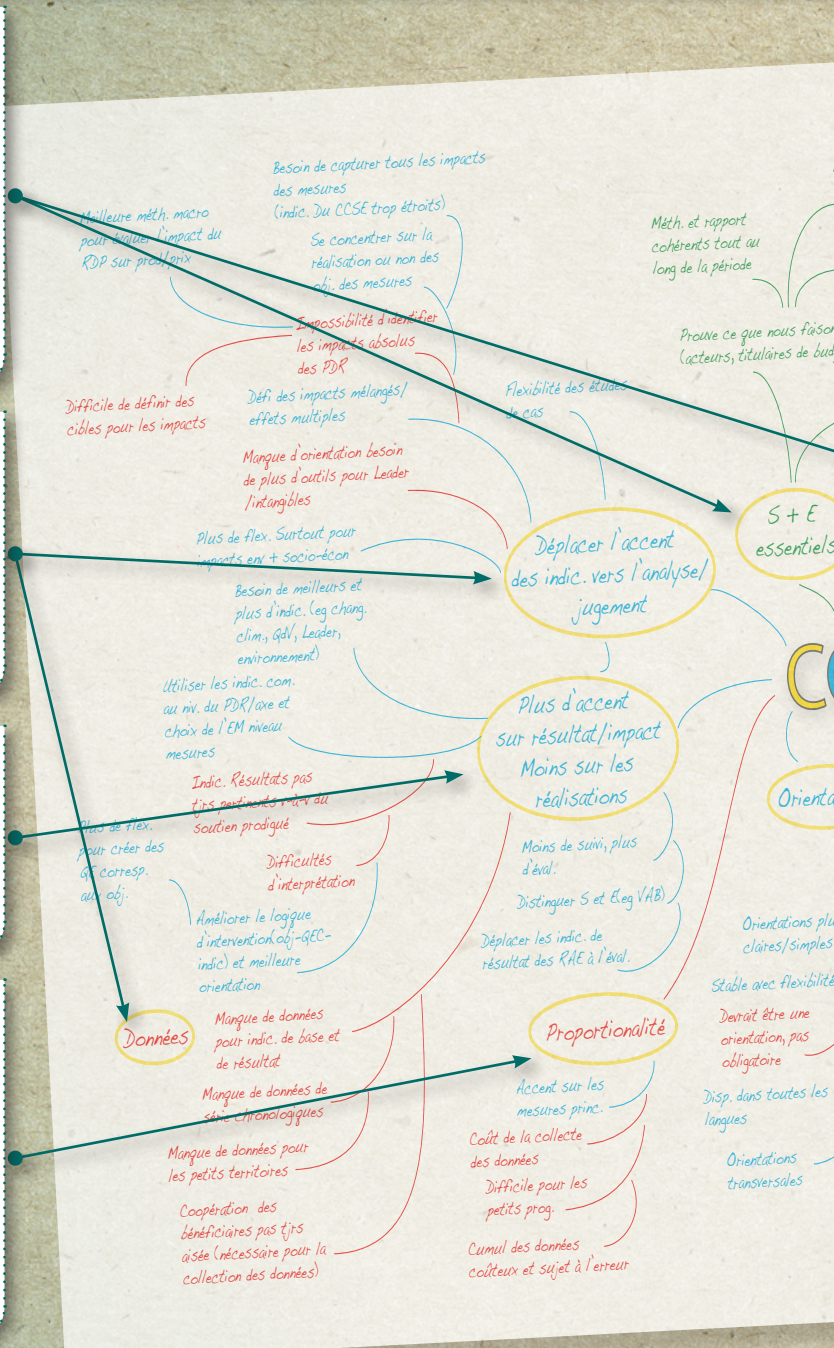 Besoin de capturer tous les impacts
des mesures
(indic. Du CCSE trop étroits)
Meilleure méth. macro
pour évaluer l'impact du
RDP sur prod/prix
Se concentrer sur la
réalisation ou non des
obj. des mesures
Impossibilité d'identifier
les impacts absolus
des PDR
Difficile de définir des
cibles pour les impacts
Défi des impacts mélangés/
effets multiples
Flexibilité des études
de cas
Manque d'orientation besoin
de plus d'outils pour Leader
/intangibles
Plus de flex. Surtout pour
impacts env + socio-écon
Déplacer l'accent
des indic. vers l'analyse/
jugement
Besoin de meilleurs et
plus d'indic. (eg chang.
clim., QdV, Leader,
environnement)
Utiliser les indic. com.
au niv. du PDR/axe et
choix de l'EM niveau
mesures
Plus d'accent
sur résultat/impact
Moins sur les
réalisations
Indic. Résultats pas
tjrs pertinents v-à-v du
soutien prodigué
Plus de flex.
pour créer des
QE corresp.
aux obj.
Difficultés
d'interprétation
Améliorer le logique
d'intervention(obj-QEC-
indic) et meilleure
orientation
Moins de suivi, plus
d'éval.
Distinguer S et E(eg VAB)
Déplacer les indic. de
résultat des RAE à l'éval.
Données
Manque de données
pour indic. de base et
de résultat
Manque de données de
série chronologiques
Manque de données pour
les petits territoires
Coopération des
bénéficiaires pas tjrs
aisée (nécessaire pour la
collection des données)
Proportionalité
Accent sur les
mesures princ.
Coût de la collecte
des données
Difficile pour les
petits prog.
Cumul des données
coûteux et sujet à l'erreur
Méth. et rapport
cohérents tout au
long de la période
Prouve ce que nous faison
(acteurs, titulaires de bud
S + E
essentiels
CO
Orienta
Orientations plu
claires/simples
Stable avec flexibilité
Devrait être une
orientation, pas
obligatoire
Disp. dans toutes les
langues
Orientations
transversales